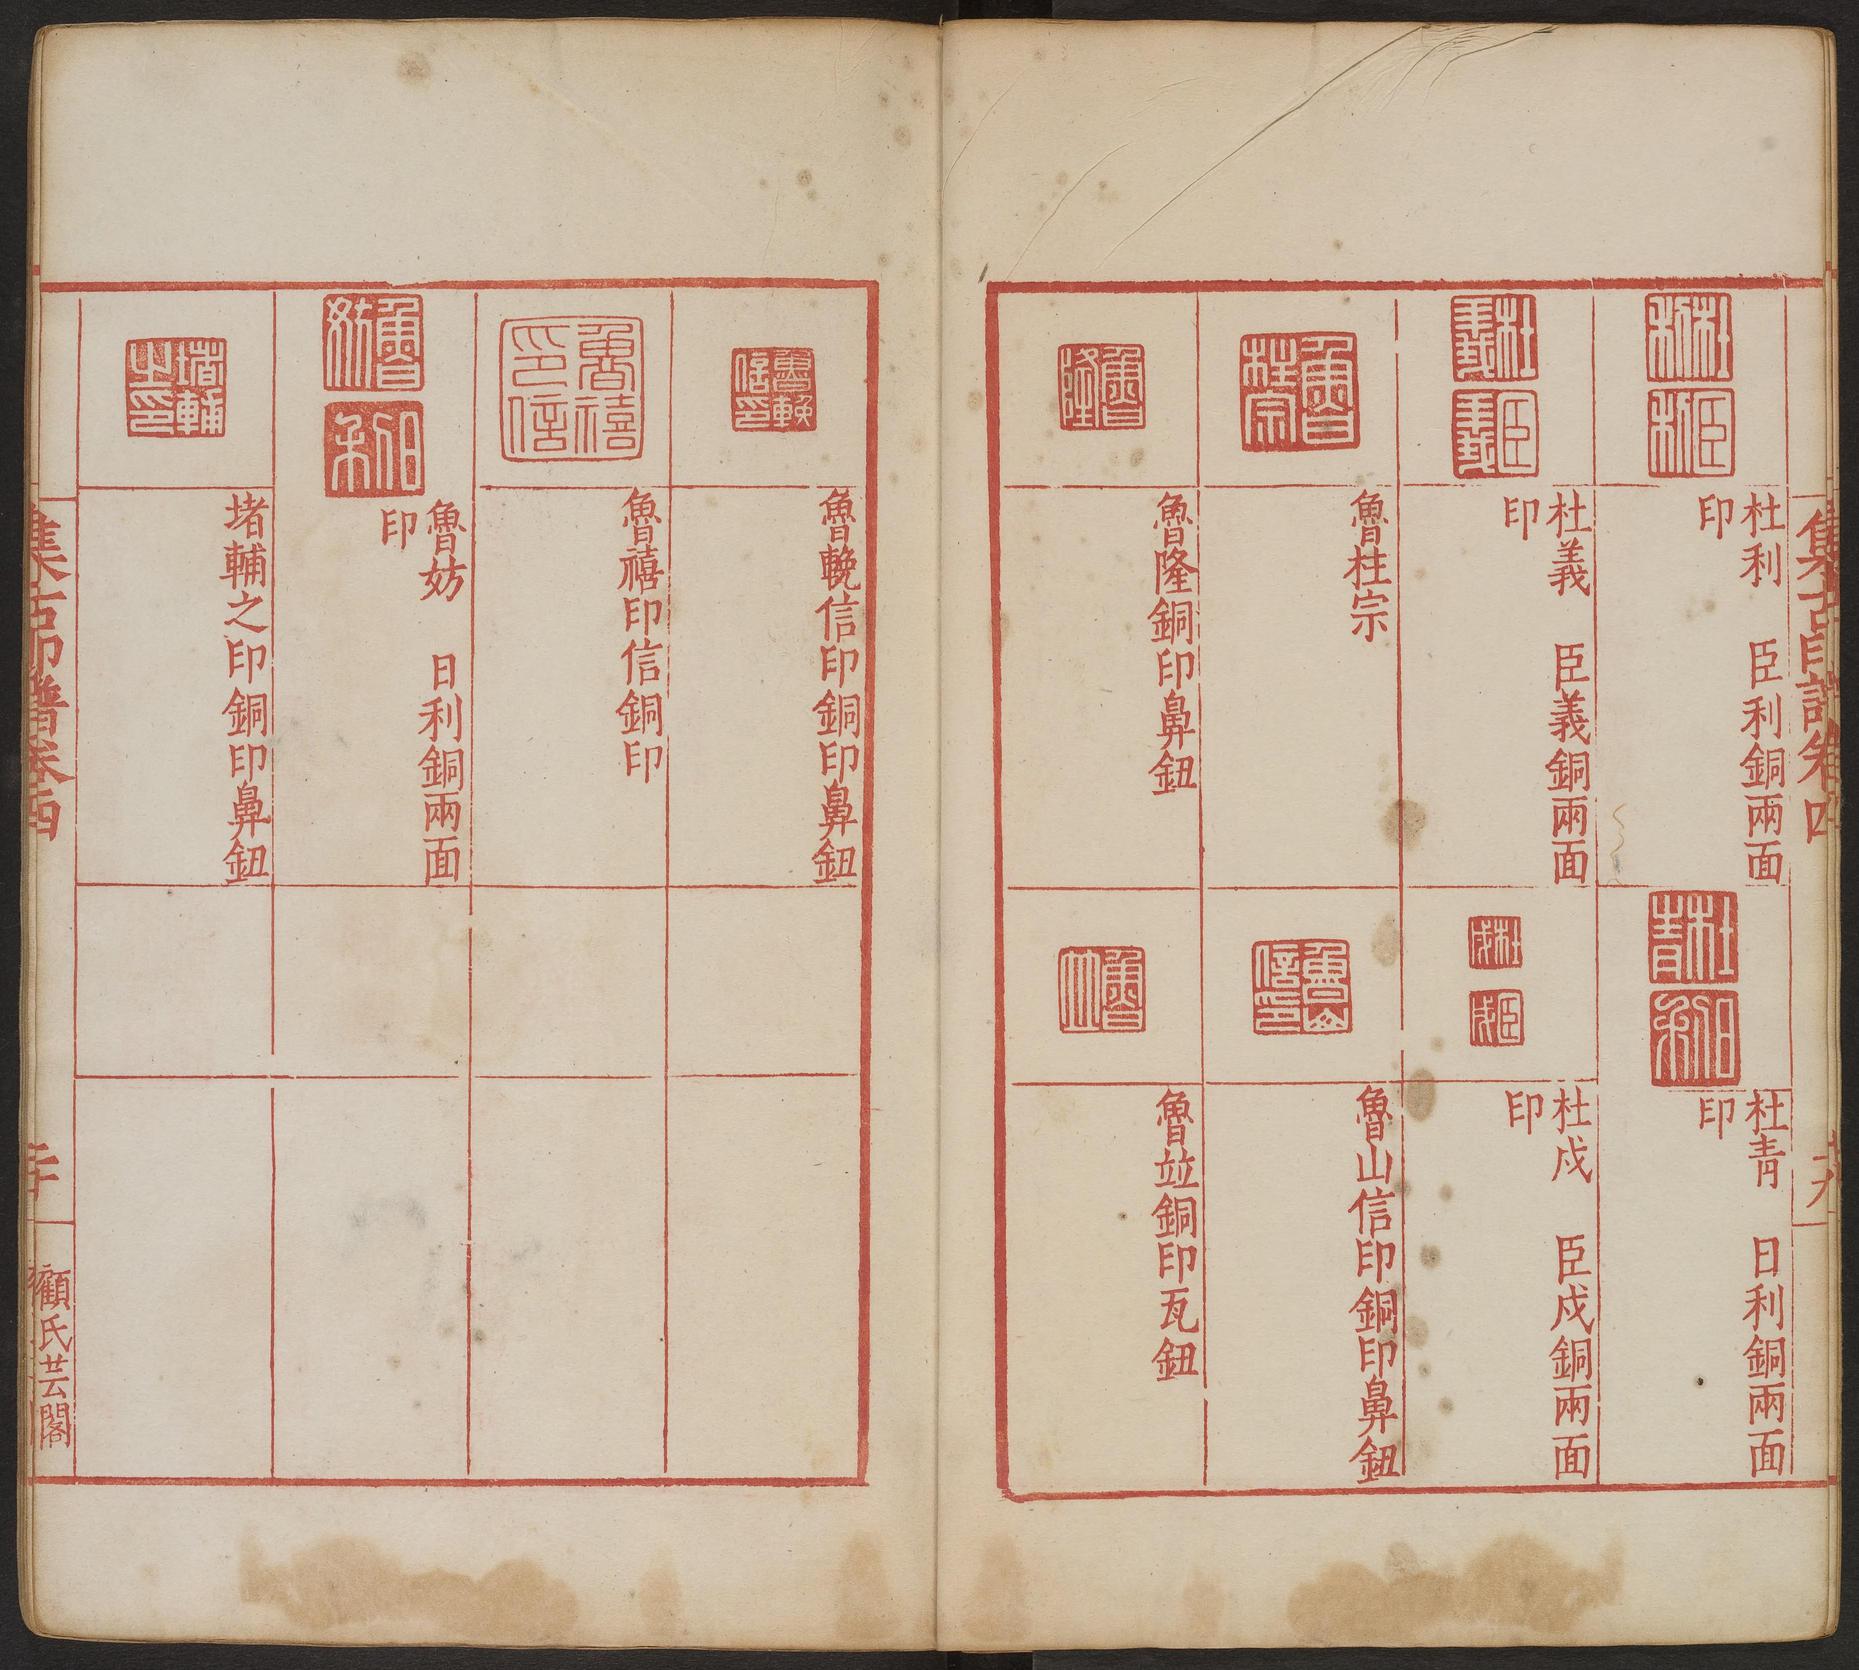 集古印譜卷四
十九
杜利　臣利銅兩面
印
杜義　臣義銅兩面
印
魯柱宗
魯隆銅印鼻鈕
杜青　日利銅兩面
印
杜戍　臣戍銅兩面
印
魯山信印銅印鼻鈕
魯竝銅印瓦鈕
魯輓信印銅印鼻鈕
魯禧印信銅印
魯妨　日利銅兩面
印
堵輔之印銅印鼻鈕
集古印譜卷四
二十
顧氏芸閣